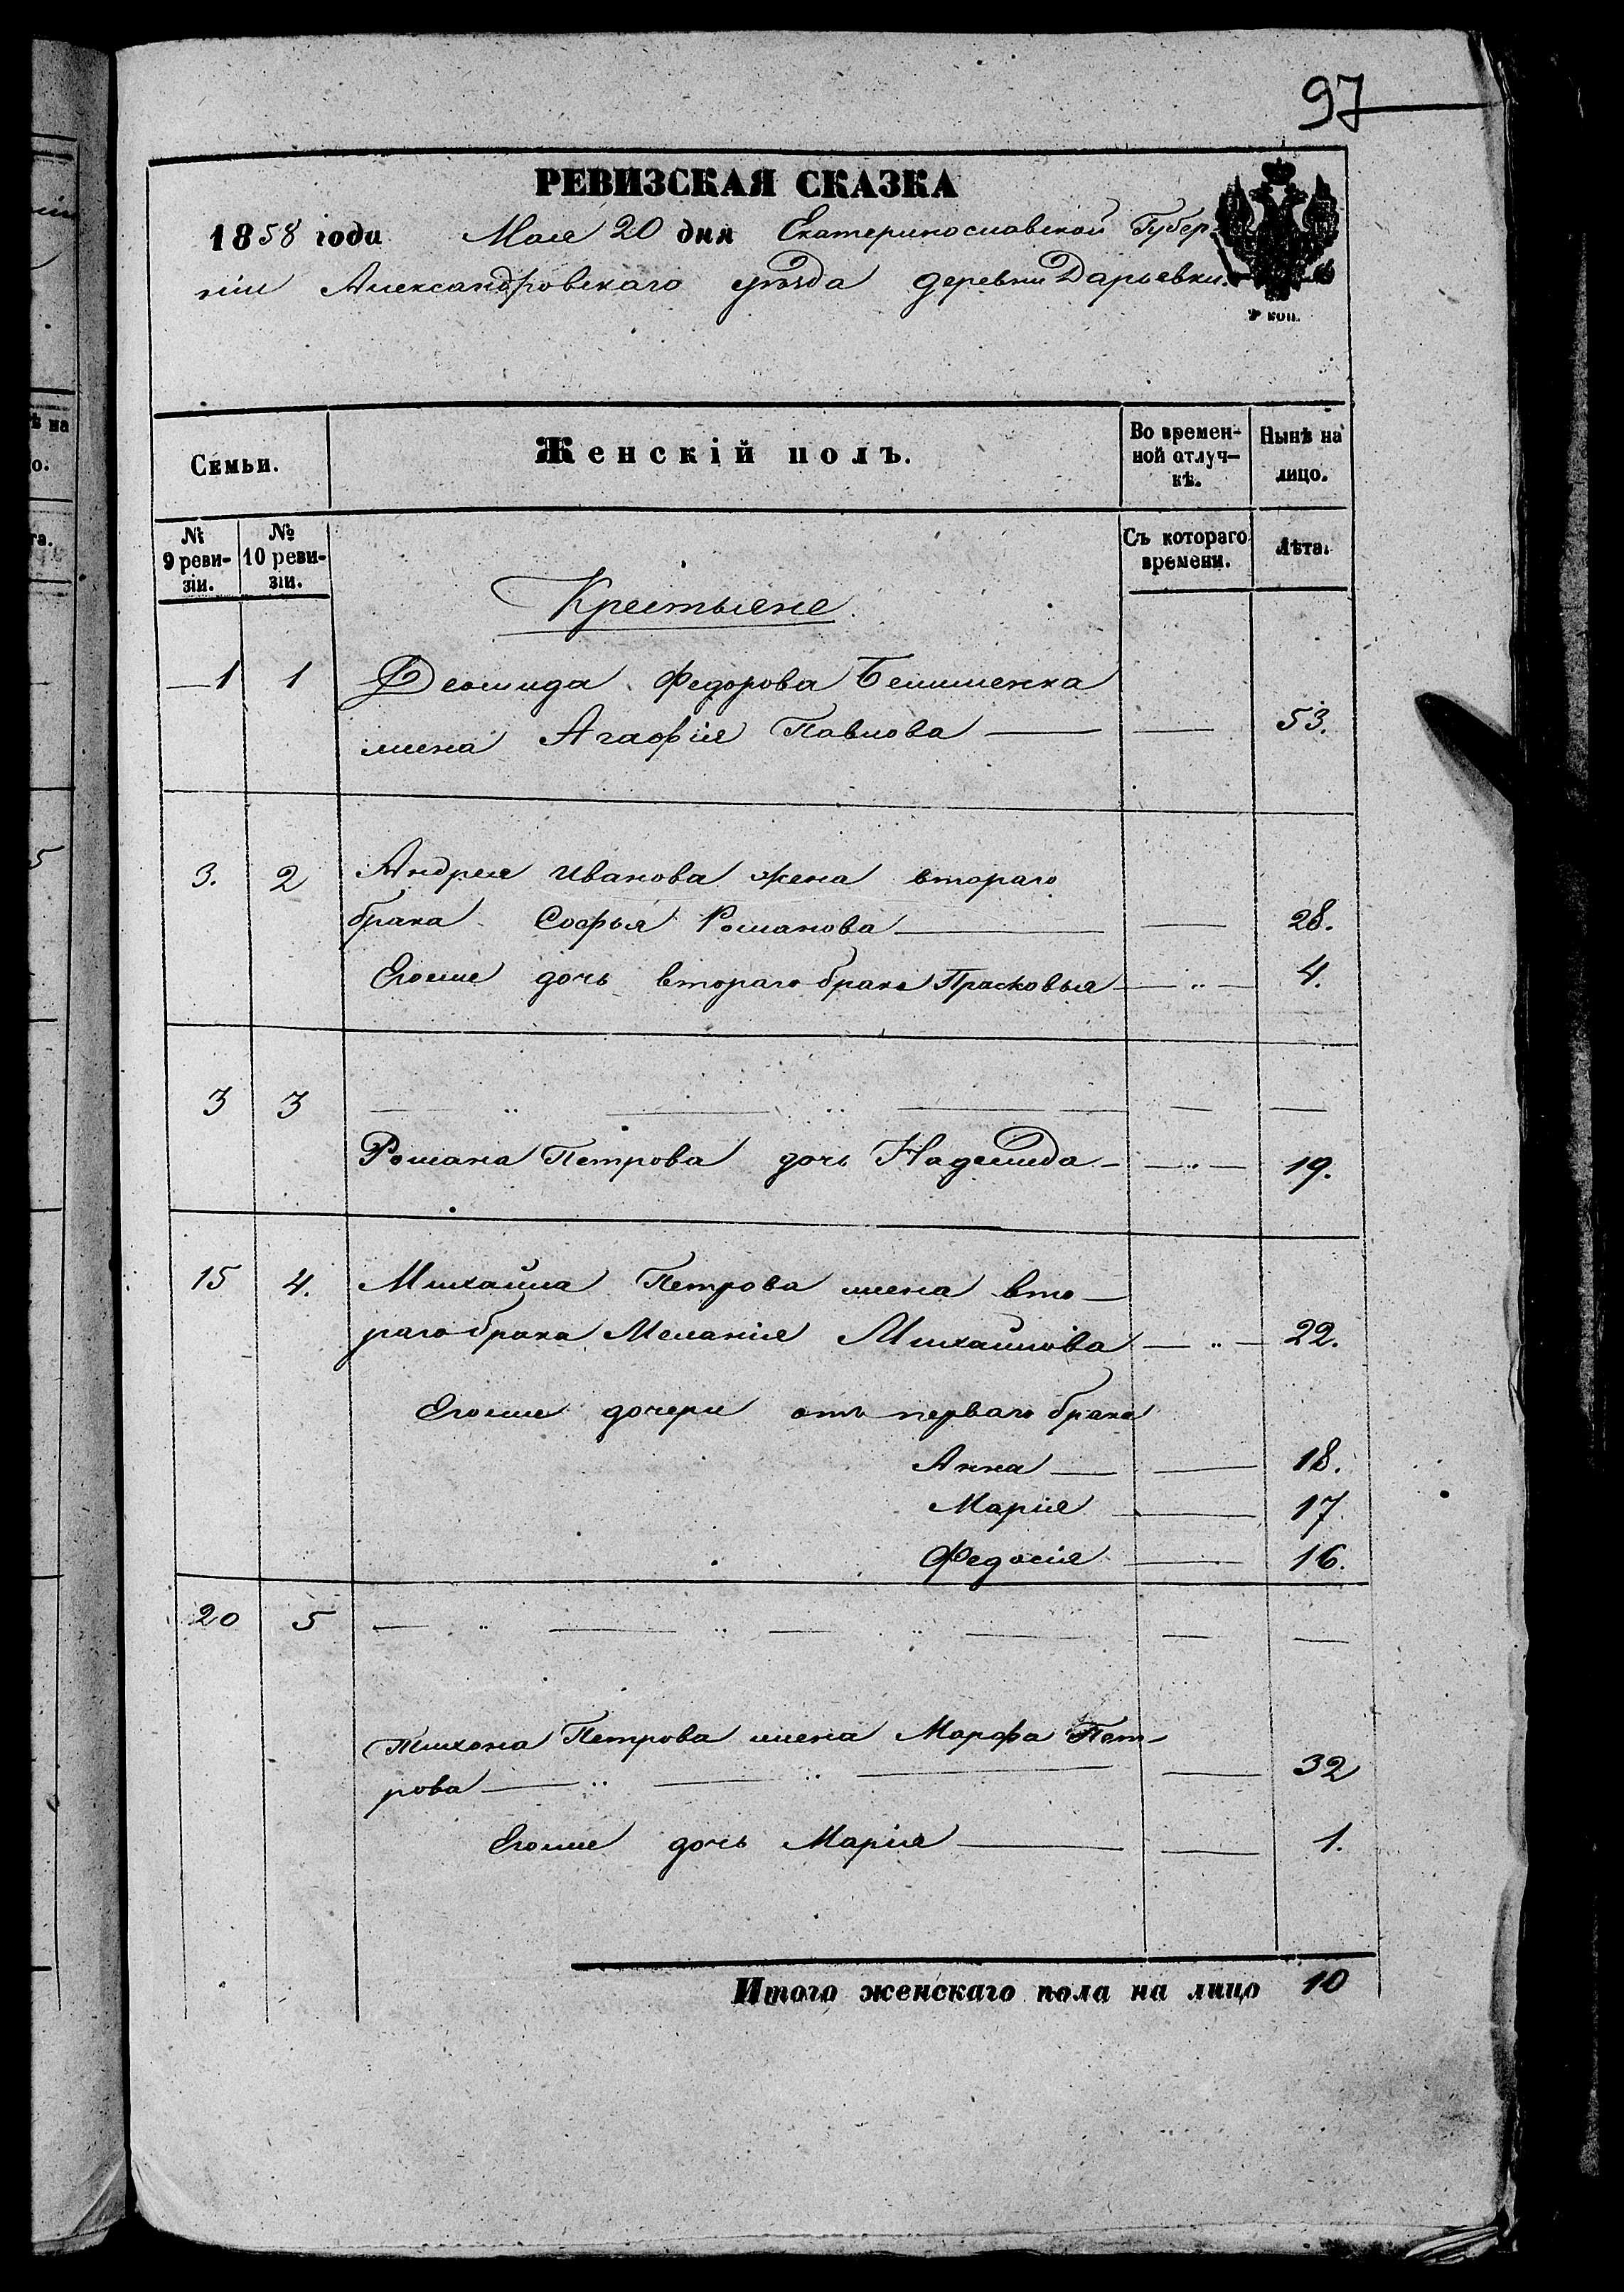 97
РЕВИЗСКАЯ СКАЗКА
1858 года Мая 20 дня Екатеринославской Губер-
ніи Александровскаго уѣзда деревни Дарьевки.
коп.
Семьи.
Женскій полъ.
Во времен-
ной отлуч-
кѣ.
Нынѣ на
лицо.
№
9 реви-
зіи.
№
10 реви-
зіи.
Съ котораго
времени.
Лѣта.
Крестьяне
1 1 Федорова
жена Агафія Павлова — — 53.
3. 2 Андрея Иванова жена втораго
брака Софья Романова — — 28.
Егоже дочь втораго брака Прасковья — " — 4.
3 3 — " — " — — — —
Романа Петрова дочь Надежда — — " — 19.
15 4. Михайла Петрова жена вто-
раго брака Меланія Михайлова — " — 22.
Егоже дочери отъ перваго брака
Анна — — 18.
Марія — 17
Федосія — 16.
20 5 — " — " — " — — —
Тихона Петрова жена Марфа Пет-
рова — " — " — — 32
Егоже дочь Марія — — 1.
Итого женскаго пола на лицо 10